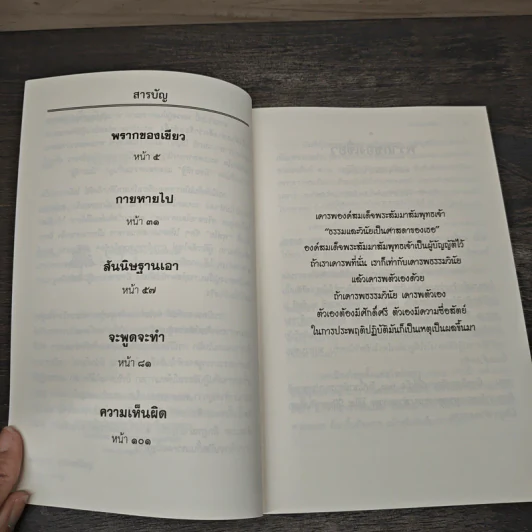 สารบัญ
พรากของเขียว
หน้า ๕
กายหายไป
หน้า ๓๑
สันนิษฐานเอา
หน้า ๕๗
จะพูดจะทำ
หน้า ๘๑
ความเห็นผิด
หน้า ๑๐๑
เคารพองค์สมเด็จพระสัมมาสัมพุทธเจ้า
“ธรรมและวินัยเป็นศาสดาของเธอ”
องค์สมเด็จพระสัมมาสัมพุทธเจ้าเป็นผู้บัญญัติไว้
ถ้าเราเคารพที่นั่น เราก็เท่ากับเคารพธรรมวินัย
แล้วเคารพตัวเองด้วย
ถ้าเคารพธรรมวินัย เคารพตัวเอง
ตัวเองต้องมีศักดิ์ศรี ตัวเองมีความซื่อสัตย์
ในการประพฤติปฏิบัติมันก็เป็นเหตุเป็นผลขึ้นมา